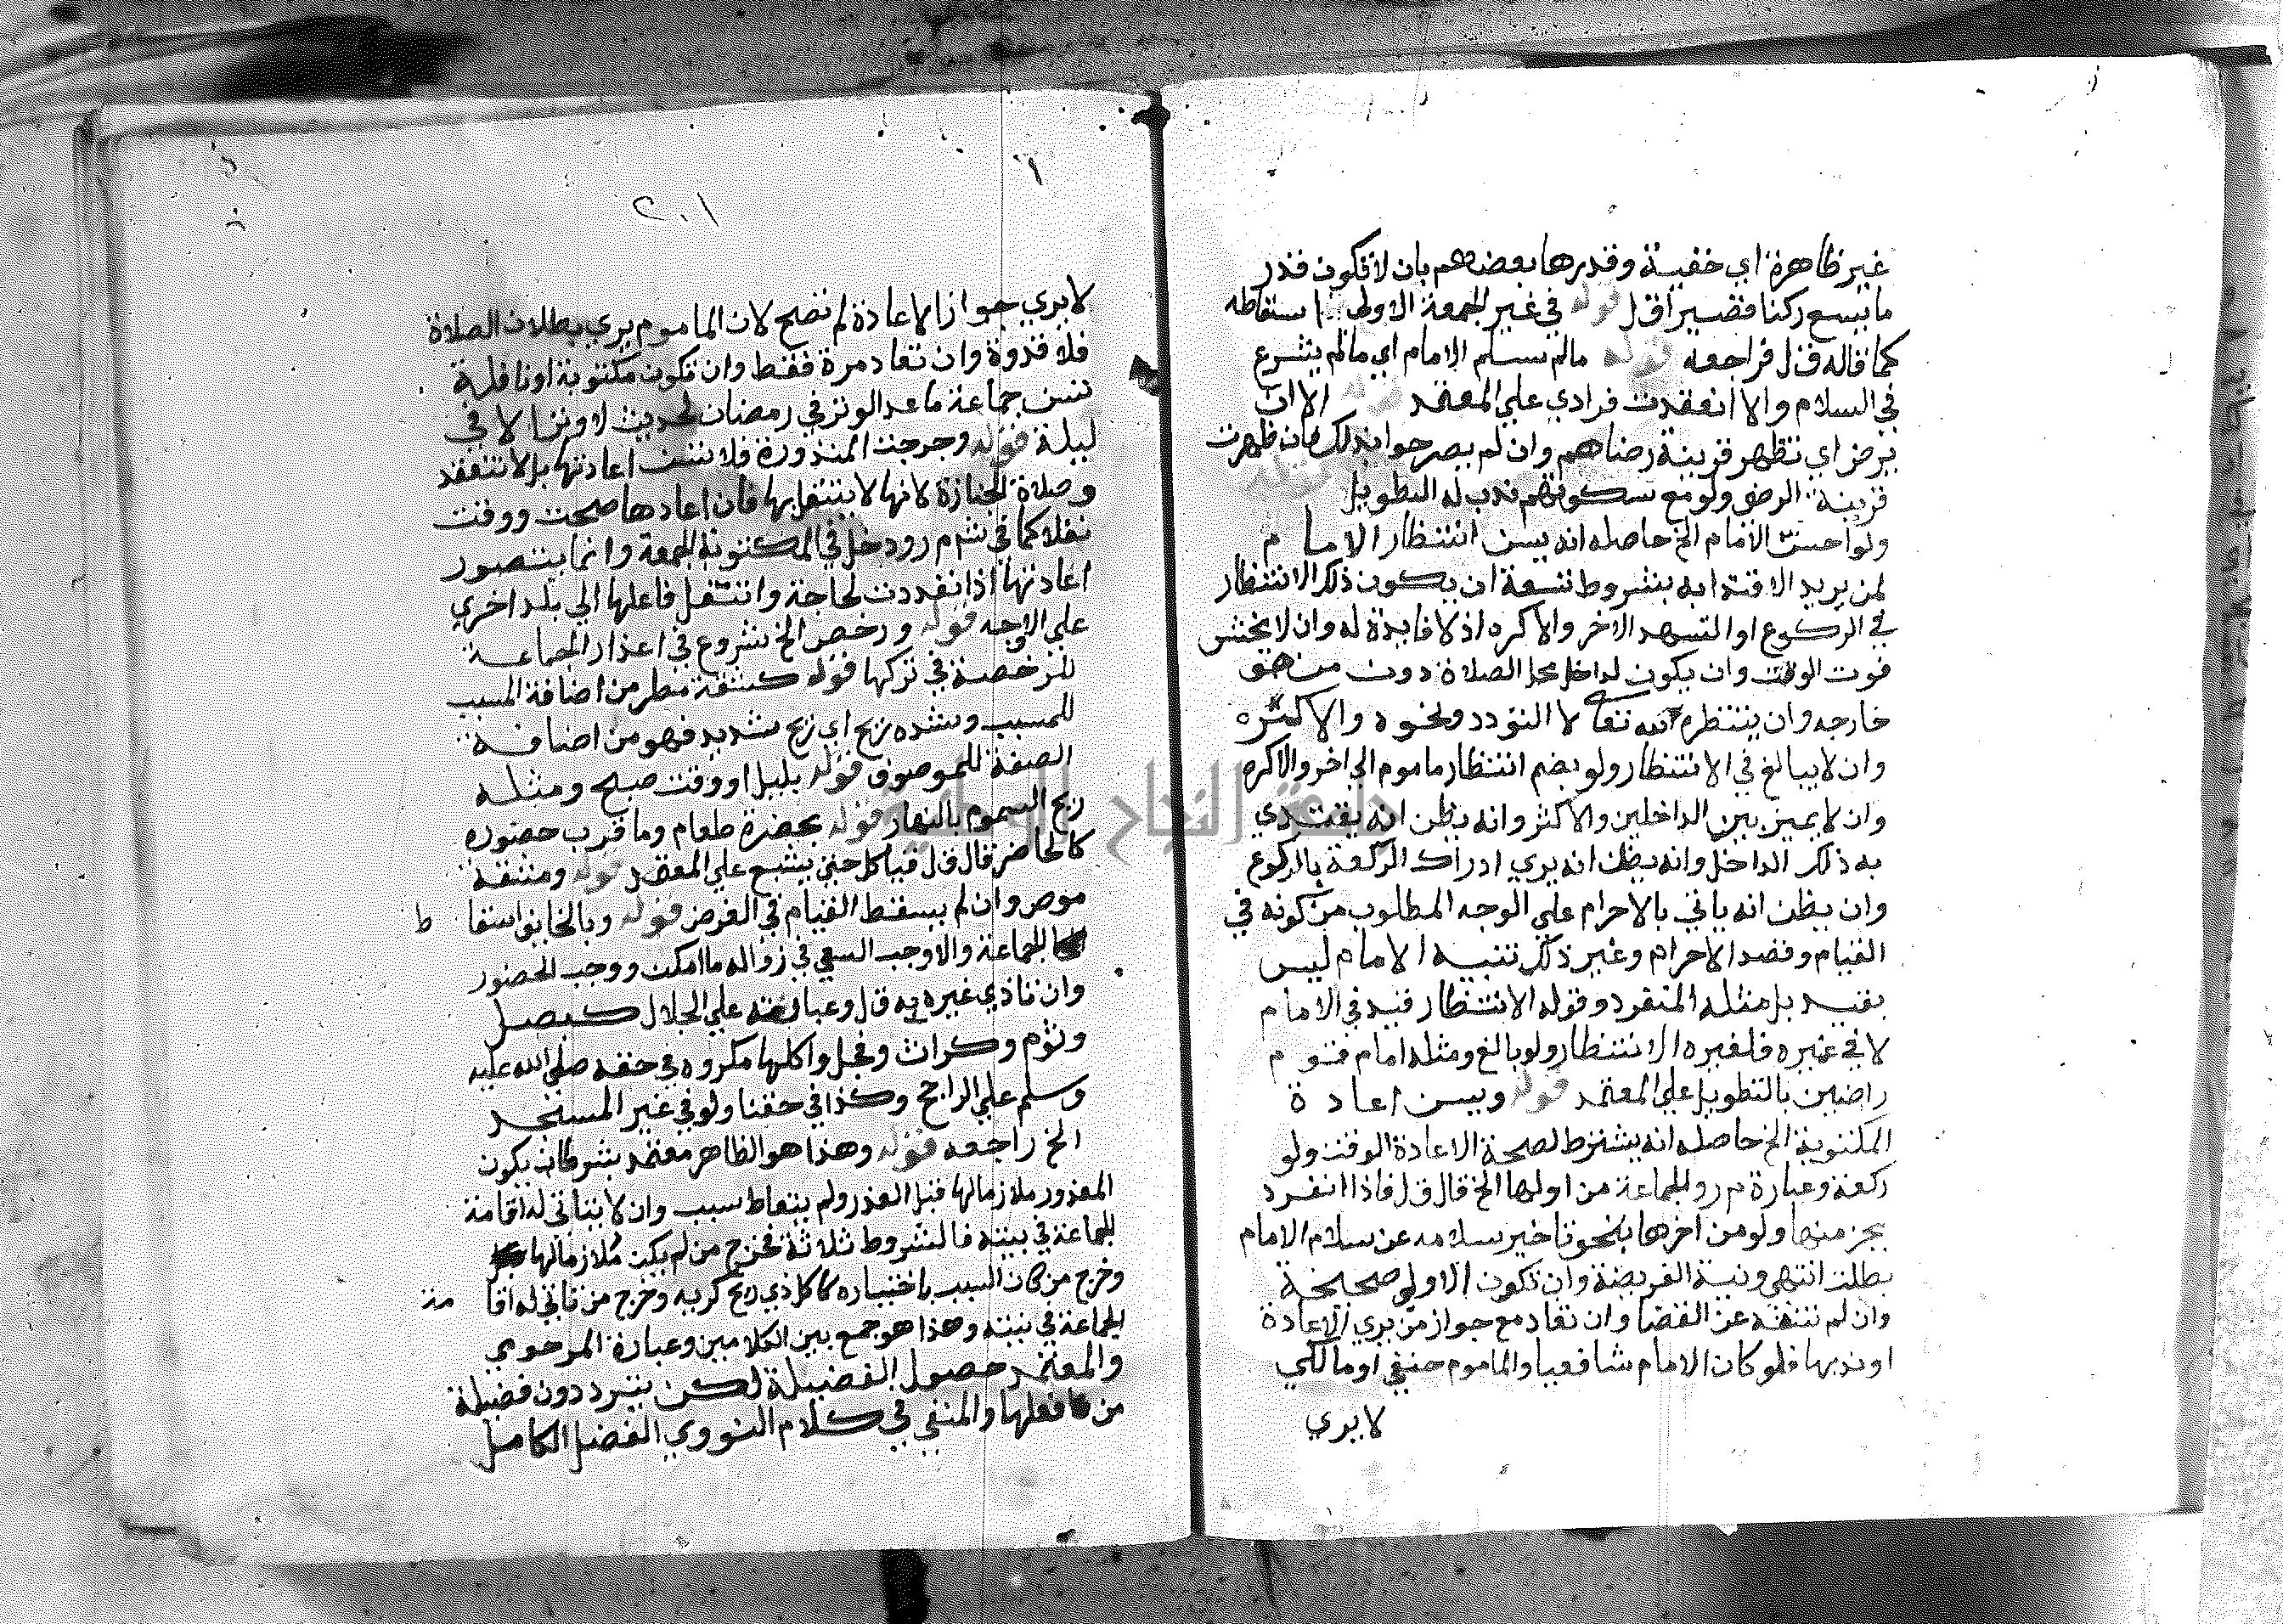 غير ظاهرة اي خفية وقدرها بعضهم بان لا تكون قدر
ما يسع ركنا قصيرا ق ل قوله في غير الجمعة الاولى اسقاطه
كما قاله ق ل فراجعه قوله مالم يسلم الامام اي مالم يشرع
في السلام والا انعقدت فرادي علي المعتمد الا ان
يرض اي تظهر قرينة رضاهم وان لم يصرحوا بذلك فان ظهرت
قرينة الرضي ولو مع سكوتهم ندب له التطويل
ولو احس الامام الخ حاصله انه يسن انتظار الامام
لمن يريد الاقتدا به بشروط تسعة ان يكون ذلك الانتظار
في الركوع او التشهد الاخر والا كره اذ لا فايدة له وان لا يخشي
فوت الوقت وان يكون لداخل محل الصلاة دون من هو
خارجه وان ينتظره لله تعالى لا التودد ونحوه والا كره
وان لا يبالغ في الانتظار ولو بضم انتظار ماموم الي اخر والا كره
وان لا يميز بين الداخلين والا كثر وانه يظن انه يقتدي
به ذلك الداخل وانه يظن انه يري ادراك الركعة بالركوع
وان يظن انه ياتي بالاحرام علي الوجه المطلوب من كونه في
القيام وقصد الاحرام وغير ذلك تنبيه الامام ليس
بقيد بل مثله المنفرد وقوله الانتظار قيد في الامام
لا في غيره فلغيره الانتظار ولو بالغ ومثله امام قوم
راضين بالتطويل علي المعتمد قوله ويسن اعادة
المكتوبة الخ حاصله انه يشترط لصحة الاعادة الوقت ولو
ركعة وعبارة م ر والجماعة من اولها الخ قال ق ل فاذا انفرد
بجزء منها ولو من اخرها بنحو تاخير سلامه عن سلام الامام
بطلت انتهي ونية الفريضة وان تكون الاولي صحيحة
وان لم تغنه عن القضا وان تعاد مع جواز من يري الاعادة
او ندبها فلو كان الامام شافعيا والماموم حنفي او مالكي
لا يري
٢٠١
لا يري جواز الاعادة لم تصح لان الماموم يري بطلان الصلاة
فلا قدوة وان تعاد مرة فقط وان تكون مكتوبة او نافلة
تسن جماعة ما عدا الوتر في رمضان لحديث لا وتران في
ليلة قوله وخرجت المنذورة فلا تسن اعادتها بل لا تنعقد
وصلاة الجنازة لانها لا يتنفل بها فان اعادها صحت ووقت
نفلا كما في ش م ر ودخل في المكتوبة الجمعة وانما يتصور
اعادتها اذا تعددت لحاجة وانتقل فاعلها الي بلد اخري
علي الاوجه قوله ورخص الخ شروع في اعذار الجماعة
المرخصة في تركها قوله كمشقة مطر من اضافة المسبب
للسبب وشدة ريح اي ريح شديد فهو من اضافة
الصفة للموصوف قوله بليل او وقت صبح ومثله
ريح السموم بالنهار قوله بحضرة طعام وما قرب حضوره
كالحاضر قال ق ل فياكل حتى يشبع علي المعتمد قوله ومشقة
مرض وان لم يسقط القيام في الفرض قوله وبالخايف اسقاط
الجماعة والا وجب السعي في زواله ما امكن ووجب الحضور
وان تاذي غيره به ق ل وعبارته علي الجلال كبصل
وثوم وكراث وفجل واكلها مكروه في حقه صلي الله عليه
وسلم علي الراجح وكذا في حقنا ولو في غير المسجد
الخ راجعه قوله وهذا هو الظاهر معتمد بشرط ان يكون
المعذور ملازما لها قبل العذر ولم يتعاط سبب وان لا يتاتي له اقامة
الجماعة في بيته فالشروط ثلاثة فخرج من لم يكن ملازما لها
وخرج من كان السبب باختياره كاكل ذي ريح كريه وخرج من تاتي له اقامة
الجماعة في بيته وهذا هو جمع بين الكلامين وعبارة المرحومي
والمعتمد حصول الفضيلة لكن يتردد دون فضيلة
من فعلها والمنفي في كلام النووي الفضل الكامل